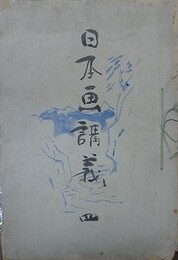 日本画講義 四